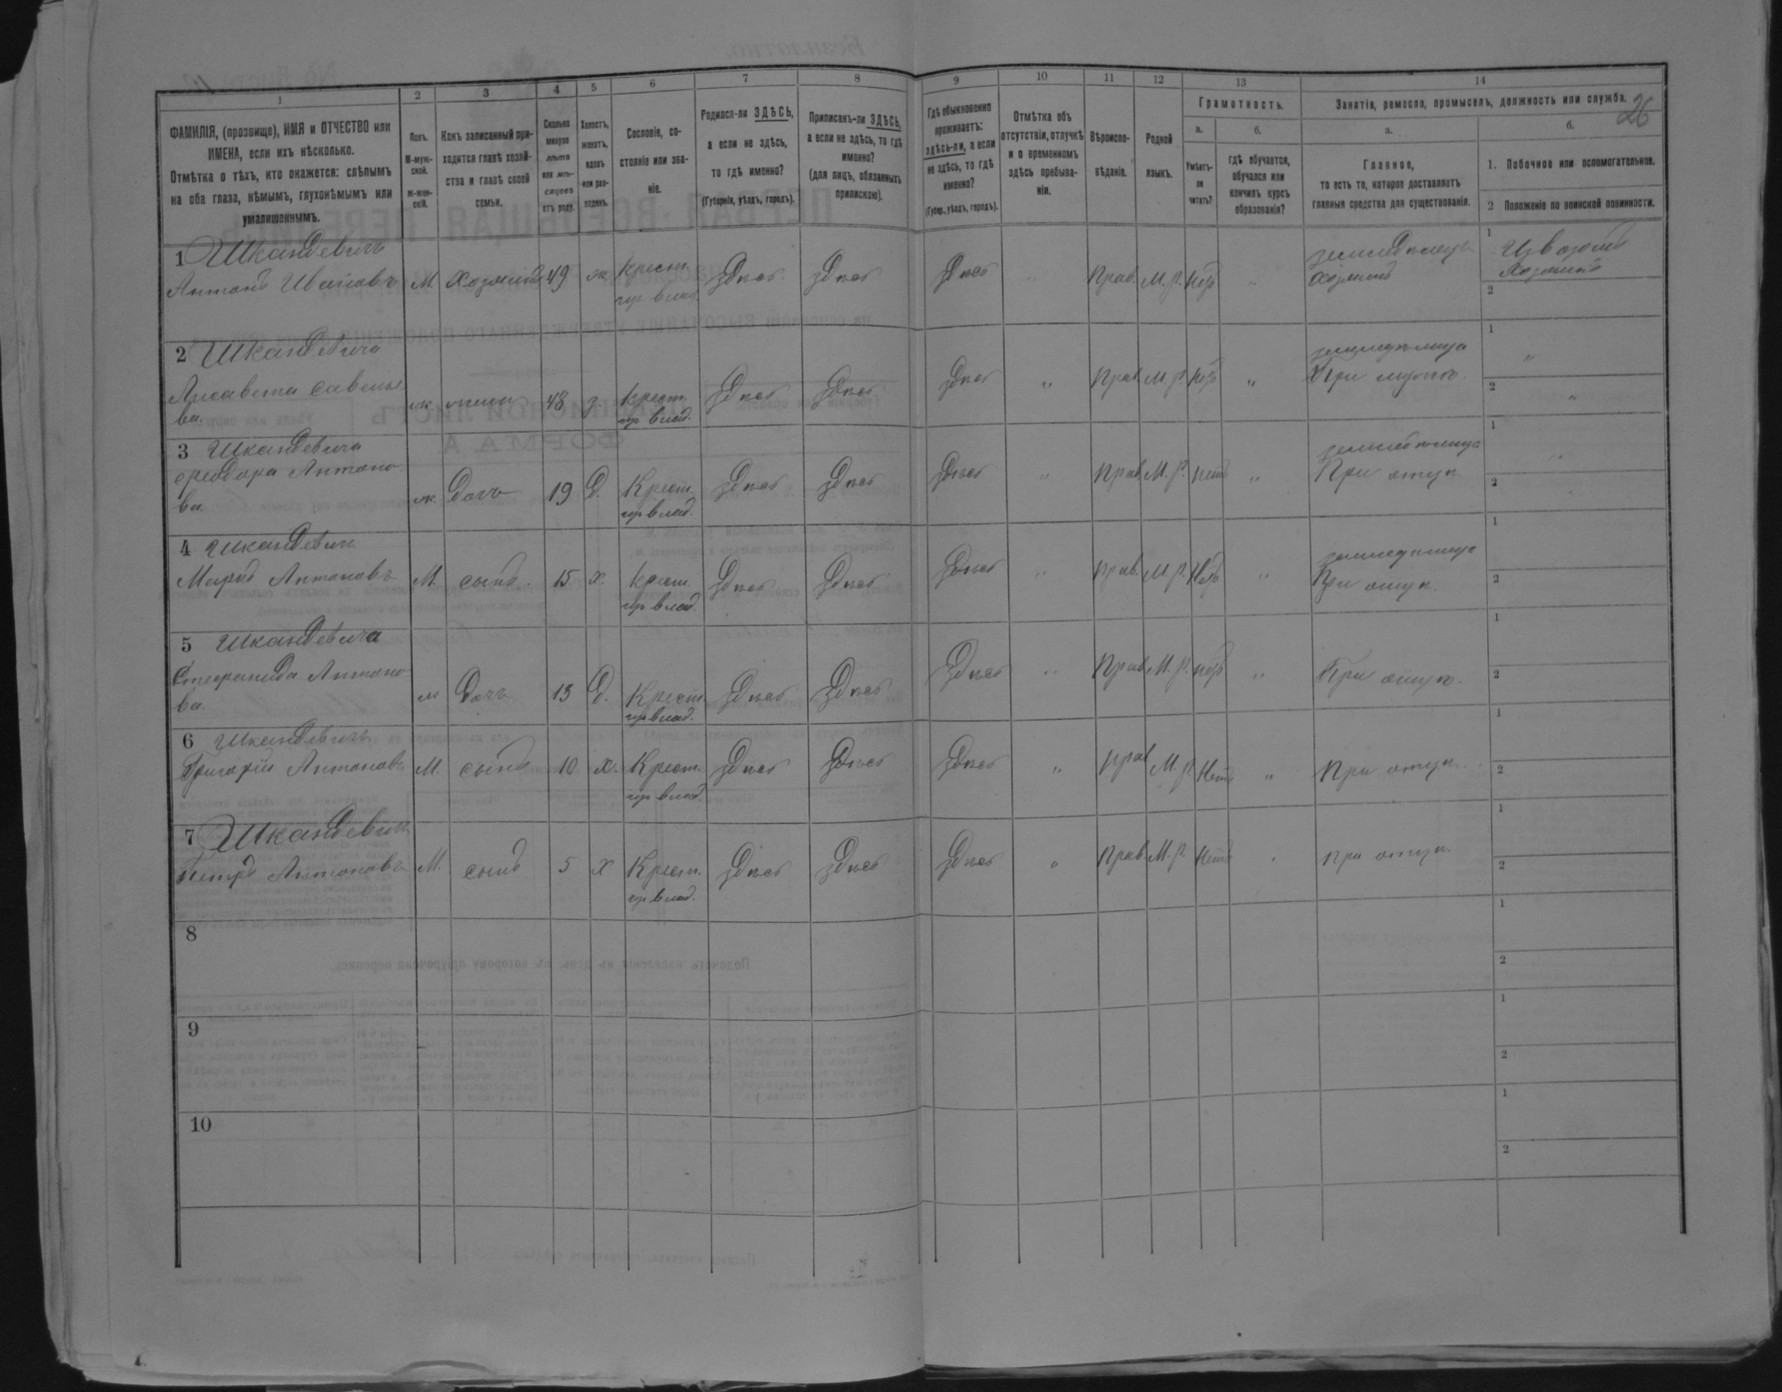 26
1 2 3 4 5 6 7 8 9 10 11 12 13 14
ФАМИЛІЯ, (прозвище), ИМЯ и ОТЧЕСТВО или
ИМЕНА, если ихъ нѣсколько.
Отмѣтка о тѣхъ, кто окажется: слѣпымъ
на оба глаза, нѣмымъ, глухонѣмымъ или
умалишоннымъ.
Полъ.
М-муж-
ской.
Ж-жен-
скій.
Какъ записанный при-
ходится главѣ хозяй-
ства и главѣ своей
семьи.
Сколько
минуло
лѣтъ
или мѣ-
сяцевъ
отъ роду.
Холостъ,
женатъ,
вдовъ
или раз-
веденъ.
Сословіе, со-
стояніе или зва-
ніе.
Родился-ли ЗДѢСЬ,
а если не здѣсь,
то гдѣ именно?
(Губернія, уѣздъ, городъ).
Приписанъ-ли ЗДѢСЬ,
а если не здѣсь, то гдѣ
именно?
(для лицъ, обязанныхъ
припискою).
Гдѣ обыкновенно
проживаетъ:
здѣсь-ли, а если
не здѣсь, то гдѣ
именно?
(Губер., уѣздъ, городъ).
Отмѣтка объ
отсутствіи, отлучкѣ
и о временномъ
здѣсь пребыва-
ніи.
Вѣроиспо-
вѣданіе.
Родной
языкъ.
Грамотность.
а.
Умѣетъ-
ли
читать?
б.
гдѣ обучается,
обучался или
кончилъ курсъ
образованія?
Занятія, ремесло, промыселъ, должность или служба.
а.
Главное,
то есть то, которое доставляетъ
главныя средства для существованія.
б.
1. Побочное или вспомогательное.
2 Положеніе по воинской повинности.
1 Шкандевичъ
Антонъ Ивановъ М Хозяинъ 49 ж Крест. Здѣсь Здѣсь Здѣсь „ Прав. М.р. Нѣтъ „ земледѣлецъ 1 Извозъ
гр влад. Хозяинъ Хозяинъ
2
2 Шкандевича
Лисавета Савелье- ж жена 48 з. Крест. Здѣсь Здѣсь Здѣсь „ Прав. М.р. Нѣтъ „ земледѣлица 1 „
ва. гр влад. При мужѣ 2 „
3 Шкандевича
Ѳеодора Антоно- ж. Дочь 19 Д. Крест. Здѣсь Здѣсь Здѣсь „ Прав. М.р. Нѣтъ „ земледѣлица 1 „
ва. гр влад. При отцѣ 2
4 Шкандевич
Антоновъ М. сынъ. 15 х. Крест. Здѣсь Здѣсь Здѣсь „ Прав. М.р. Нѣтъ „ 1
гр влад. При отцѣ. 2
5 Шкандевича
Стефанида Антоно- ж Дочь 13 Д. Крест. Здѣсь Здѣсь Здѣсь „ Прав. М.р. Нѣтъ „ При отцѣ. 1
ва. гр влад. 2
6 Шкандевичъ
Григорій Антоновъ М. сынъ 10 х. Крест. Здѣсь Здѣсь Здѣсь „ Прав М.р. Нѣтъ „ При отцѣ. 1
гр влад. 2
7 Шкандевич
Петръ Антоновъ М. сынъ 5 х Крест. Здѣсь Здѣсь Здѣсь „ Прав. М.р. Нѣтъ „ при отцѣ. 1
гр влад. 2
8 1
2
9 1
2
10 1
2